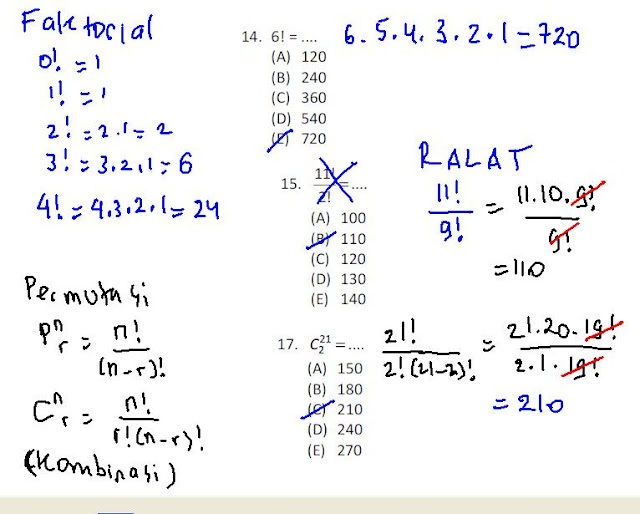 Faktorial
0! = 1
1! = 1
2! = 2.1 = 2
3! = 3.2.1 = 6
4! = 4.3.2.1 = 24
Permutasi
P^n_r = n!/(n-r)!
C^n_r = n!/r!(n-r)!
(Kombinasi)
14. 6! = .... 6.5.4.3.2.1 = 720
(A) 120
(B) 240
(C) 360
(D) 540
(E) 720
RALAT
15. 11!/2! = .... 11!/9! = 11.10.9!/9!
= 110
(A) 100
(B) 110
(C) 120
(D) 130
(E) 140
17. C^21_2 = .... 21!/2!(21-2)! = 21.20.19!/2.1.19!
= 210
(A) 150
(B) 180
(C) 210
(D) 240
(E) 270